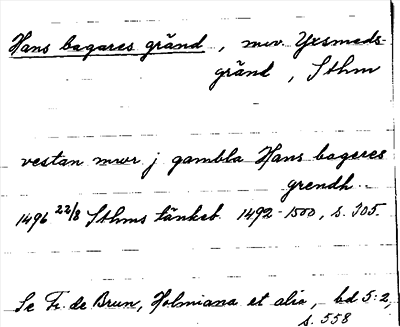 Hans bagares gränd, nuv. Yxsmeds-
gränd, Sthm
vestan mwr j gambla Hans bageres
grendh.
1496 22/8 Sthms tänkeb. 1492-1500, s. 305.
Se Fr. de Brun, Holmiana et alia, bd 5:2,
s. 558